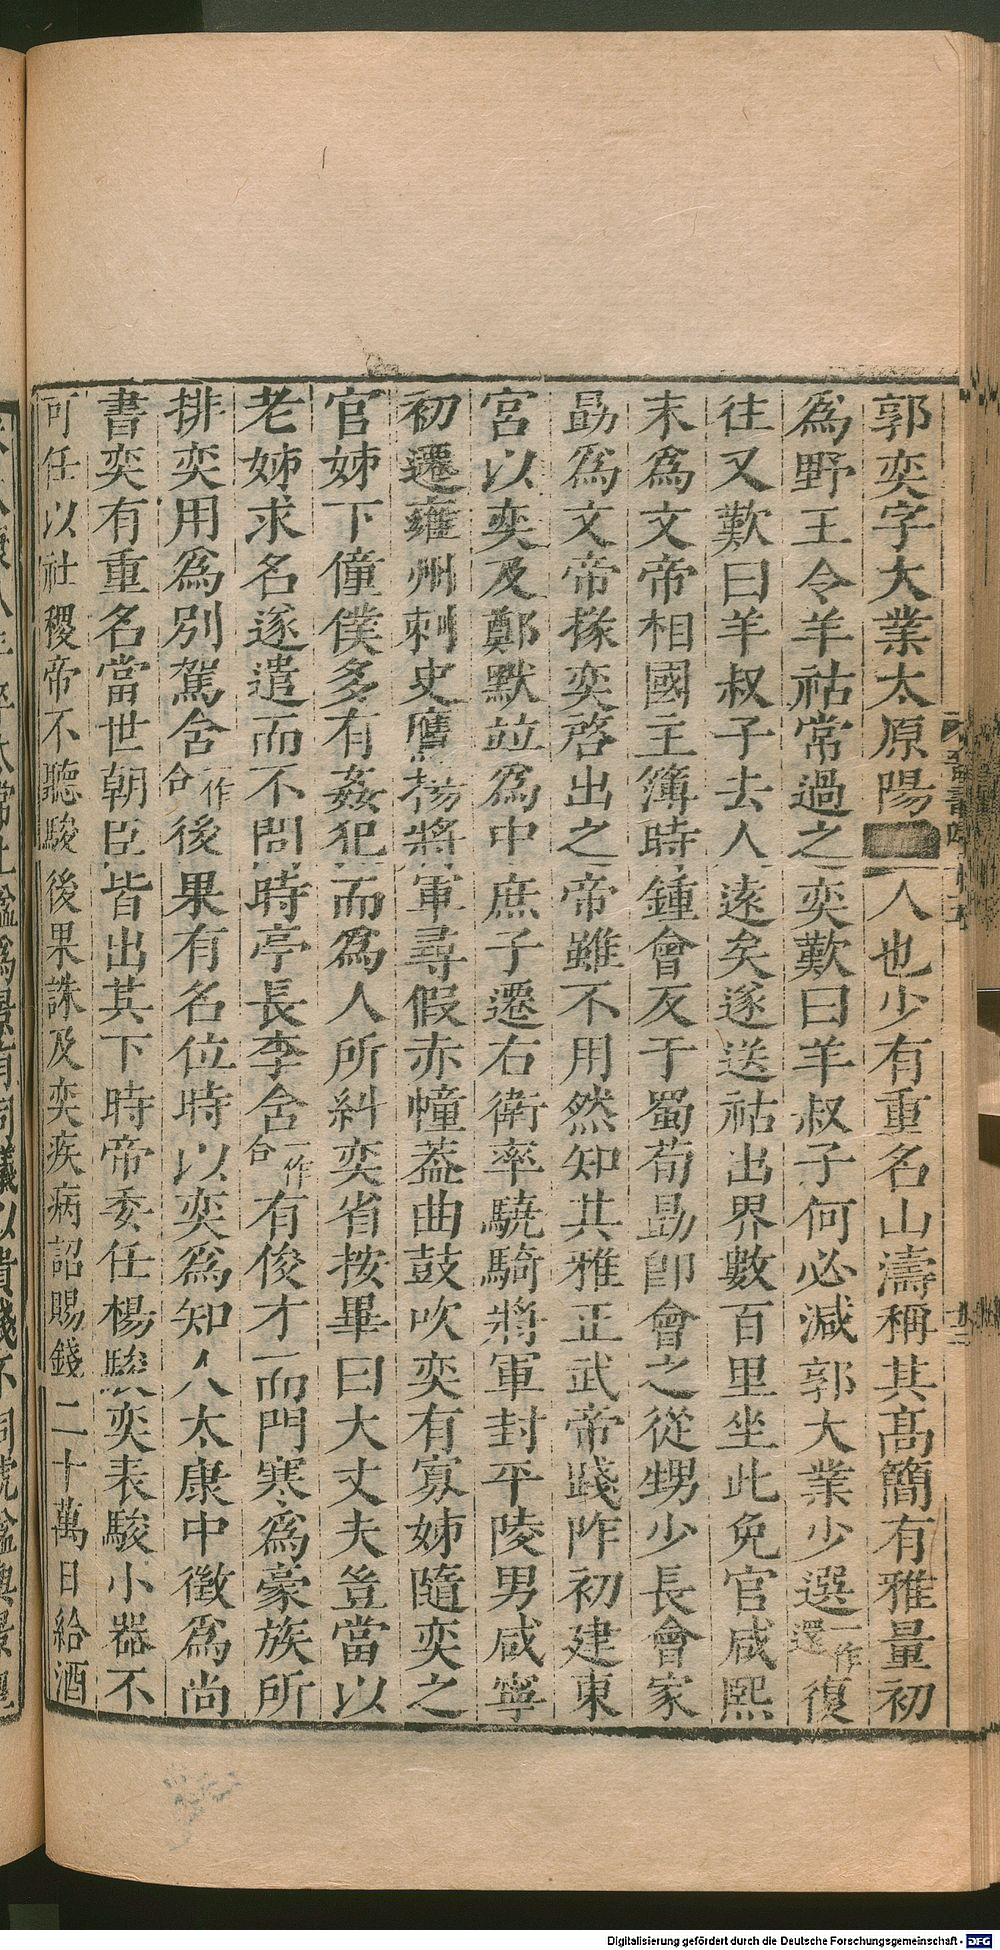 郭奕字大業太原陽人也少有重名山濤稱其高簡有雅量初
爲野王令羊祜常過之奕歎曰羊叔子何必減郭大業少選一作還復
往又歎曰羊叔子去人遠矣遂送祜出界數百里坐此免官咸熙
末爲文帝相國主簿時鍾會反于蜀荀勗卽會之從甥少長會家
勗爲文帝掾奕啓出之帝雖不用然知其雅正武帝踐阼初建東
宮以奕及鄭默竝爲中庶子遷右衛率驍騎將軍封平陵男咸寧
初遷雍州刺史鷹揚將軍尋假赤幢葢曲鼓吹奕有寡姊隨奕之
官姊下僮僕多有姦犯而爲人所糾奕省按畢曰大丈夫豈當以
老姊求名遂遣而不問時亭長李含一作合有俊才而門寒爲豪族所
排奕用爲別駕含一作合後果有名位時以奕爲知人太康中徵爲尚
書奕有重名當世朝臣皆出其下時帝委任楊駿奕表駿小器不
可任以社稷帝不聽駿後果誅及奕疾病詔賜錢二十萬日給酒
Digitalisierung gefördert durch die Deutsche Forschungsgemeinschaft - DFG